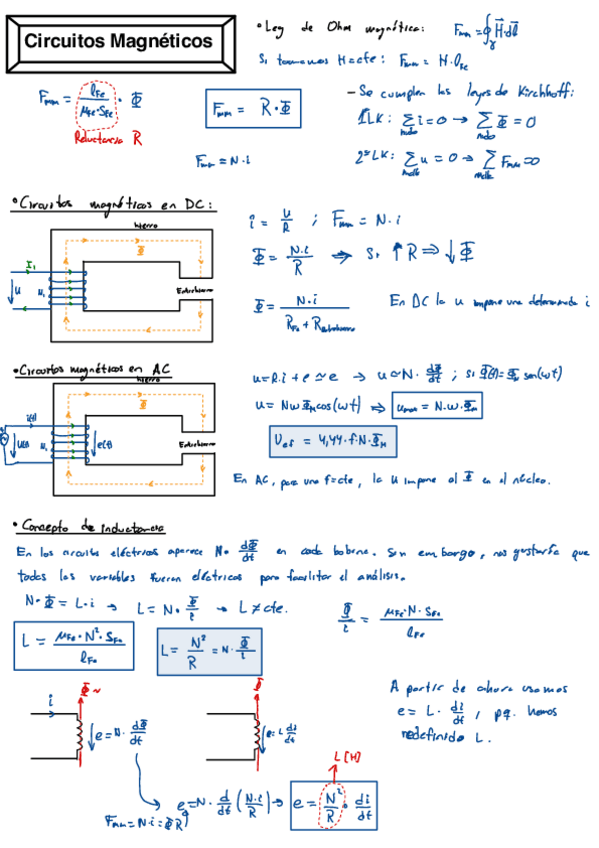 Circuitos Magnéticos
• Ley de Ohm magnética: Fmm = ∮γ H⃗·dl⃗
Si tomamos H=cte: Fmm = H·lFe
Fmm = lFe / (μFe·SFe) · Φ
Reluctancia R
Fmm = R·Φ
Fmm = N·i
– Se cumplen las leyes de Kirchhoff:
1ªLK: ∑nudo i=0 → ∑nudo Φ = 0
2ªLK: ∑malla u=0 → ∑malla Fmm=0
• Circuitos magnéticos en DC:
hierro
Φ
I1
u
N1
Entrehierro
i = u/R ; Fmm = N·i
Φ = N·i / R ⇒ Si ↑R ⇒ ↓Φ
Φ = N·i / (RFe + Rentrehierro)
En DC la u impone una determinada i
• Circuitos magnéticos en AC
hierro
Φ
i(t)
u(t)
N1
e(t)
Entrehierro
u=R·i+e≃e → u≃N·dΦ/dt ; si Φ(t)=ΦM sen(ωt)
u = NωΦM cos(ωt) ⇒ umax = N·ω·ΦM
Uef = 4,44·f·N·ΦM
En AC, para una f=cte, la u impone el Φ en el núcleo.
• Concepto de inductancia
En los circuitos eléctricos aparece N· dΦ/dt en cada bobina. Sin embargo, nos gustaría que
todas las variables fueran eléctricas para facilitar el análisis.
N·Φ = L·i → L = N· Φ/i → L ≠ cte.
Φ/i = μFe·N·SFe / lFe
L = μFe·N²·SFe / lFe
L = N²/R = N· Φ/i
i
Φ ~
e = N· dΦ/dt
Φ
e = L di/dt
A partir de ahora usamos
e = L· di/dt, pq. hemos
redefinido L.
L [H]
e = N· d/dt (N·i/R) → e = N²/R · di/dt
Fmm = N·i = ΦR